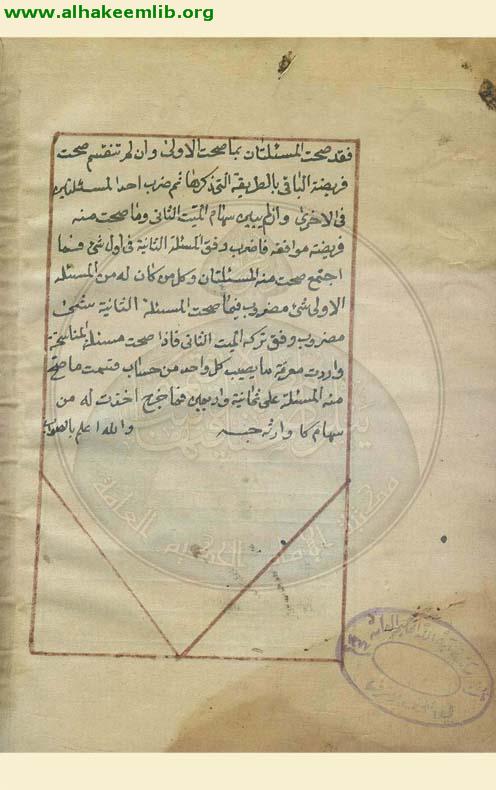 www.alhakeemlib.org
فقد صحت المسئلتان بما صحت الاولى وان لم تنقسم صحت
فريضة الباقى بالطريقة التى ذكرناها ثم ضرب احد المسئلتين
فى الاخرى وان لم يبين سهام الميت الثانى وما صحت منه
فريضته موافقه فاضرب وفق المسئلة الثانية فى اول شئ فما
اجتمع صحت منه المسئلتان وكل من كان له من المسئله
الاولى شئ مضروب فيما صحت المسئلة الثانية شئ
مضروب وفق تركه الميت الثانى فاذا صحت مسئلة المناسخة
واردت معرفة ما يصيب كل واحد من حساب قسمت ما صح
منه المسئلة على ثمانية واربعين فما خرج اخذت له من
سهام كل وارث حبه والله اعلم بالصواب
مكتبة الإمام الحكيم العامة